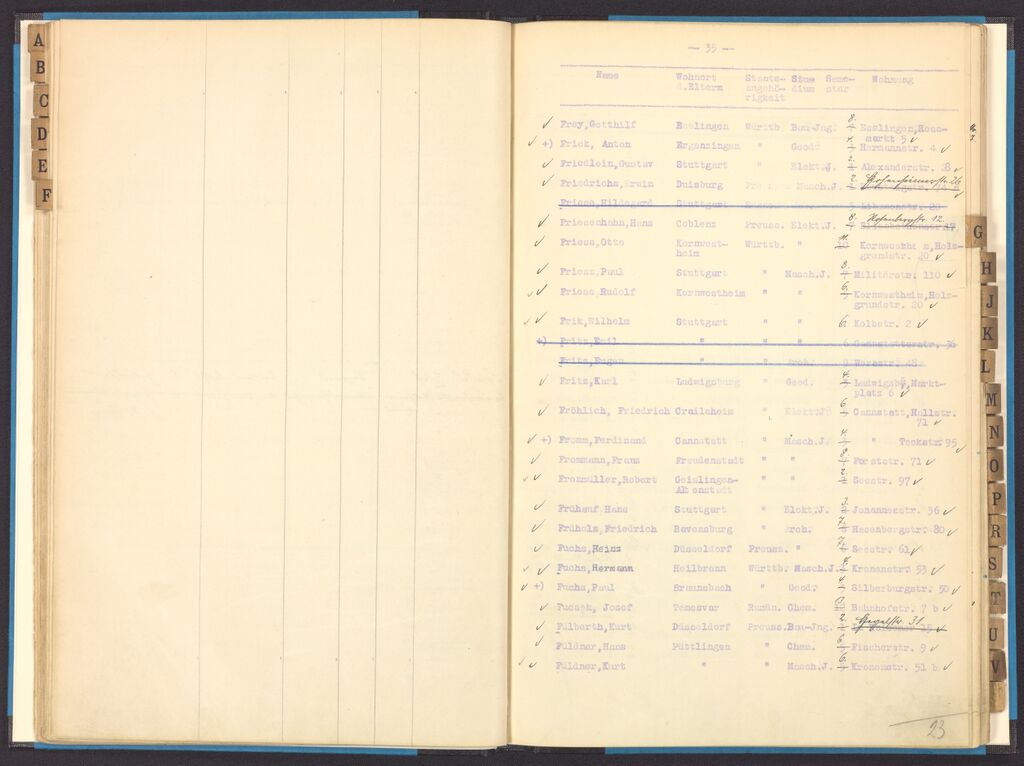 A
B
C
D
E
F
— 35 —
Name Wohnort Staats- Stu- Seme- Wohnung
d.Eltern angehö- dium ster
rigkeit
✓ Frey, Gotthilf Esslingen Württb Bau-Jng. 8. Esslingen,
markt 5 ✓
✓ +) Frick, Anton Ergenzingen " Geod. Hermannstr. 4 ✓
Friedlein,Gustav Stuttgart " Elekt.J. Alexanderstr. 28 ✓
✓ Friedrichs,Erwin Duisburg Masch.J. 2.
Friess,Hildegard Stuttgart
✓ Friesenhahn,Hans Coblenz Preuss. Elekt.J. 8. Hasenbergstr. 12.
✓ Friess,Otto Kornwest- Württb. " 11. Kornwestheim,Holz-
heim grundstr. 20 ✓
✓ Friess,Paul Stuttgart " Masch.J. 8. Militärstr. 110 ✓
✓ Friess,Rudolf Kornwestheim " " 6. Kornwestheim,Holz-
grundstr. 20 ✓
✓ Frik,Wilhelm Stuttgart " " 6. Kolbstr. 2 ✓
+) Fritz,Emil " " " 6 Cannstatterstr. 36
Fritz,Eugen " " Arch. 9 Werastr. 48
✓ Fritz,Karl Ludwigsburg " Geod. 4. Ludwigsbg,Markt-
platz 6 ✓
✓ Fröhlich, Friedrich Crailsheim " Elekt.J. 6. Cannstatt,Hallstr.
71 ✓
✓ +) Fromm,Ferdinand Cannstatt " Masch.J. 4. " Teckstr. 95
✓ Frommann,Franz Freudenstadt " " 8. Forststr. 71 ✓
✓ ✓ Frommüller,Robert Geislingen- " " 2. Seestr. 97 ✓
Altenstadt
✓ Frühauf,Hans Stuttgart " Elekt.J. 3. Johannesstr. 36 ✓
✓ Früholz,Friedrich Ravensburg " Arch. 7. Hasenbergstr. 80 ✓
✓ Fuchs,Heinz Düsseldorf Preuss. " 7. Seestr. 61 ✓
✓ ✓ Fuchs,Hermann Heilbronn Württb. Masch.J. 4. Kronenstr. 53 ✓
✓ +) Fuchs,Paul Braunsbach " Geod. 4. Silberburgstr. 50 ✓
✓ Fucsek, Josef Temesvar Rumän. Chem. Bahnhofstr. 7 b ✓
✓ Fülberth,Kurt Düsseldorf Preuss. Bau-Jng. 2. 31.
✓ Füldner,Hans Püttlingen " Chem. 6 Fischerstr. 9 ✓
✓ ✓ Füldner,Kurt " " Masch.J. 6. Kronenstr. 51 b ✓
23
G
H
J
K
L
M
N
O
P
R
S
T
U
V